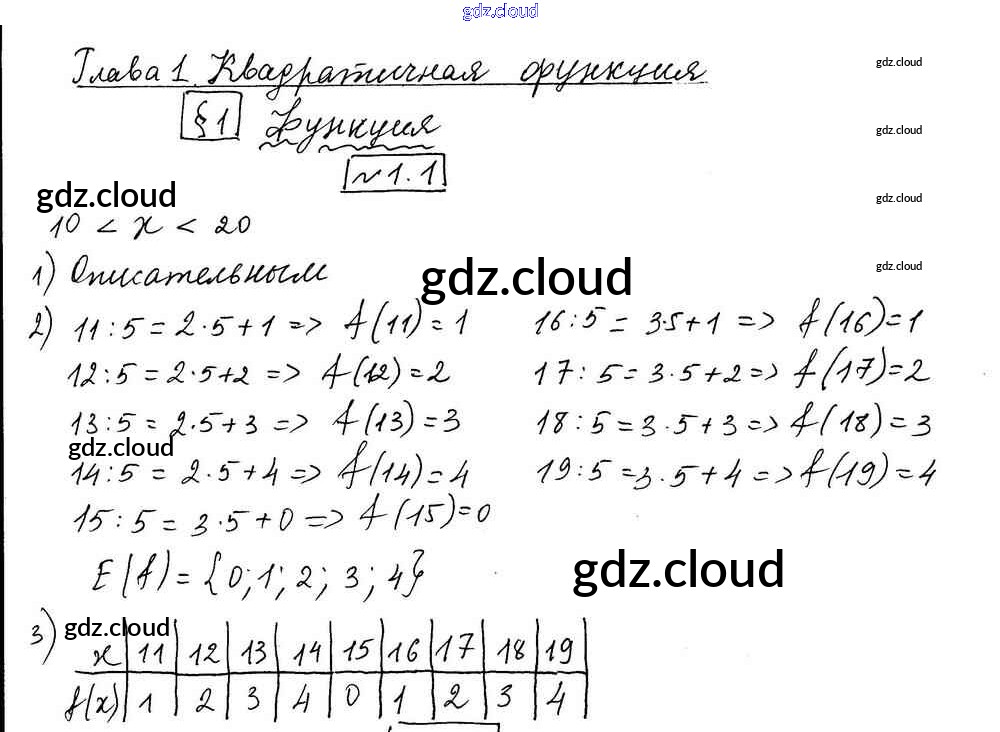 gdz.cloud
Глава 1 Квадратичная функция
gdz.cloud
§1 Функция
gdz.cloud
№1.1
gdz.cloud
gdz.cloud
10 < x < 20
1) Описательным
gdz.cloud
gdz.cloud
2) 11:5 = 2·5+1 => f(11)=1
16:5 = 3·5+1 => f(16)=1
12:5 = 2·5+2 => f(12)=2
17:5 = 3·5+2 => f(17)=2
13:5 = 2·5+3 => f(13)=3
18:5 = 3·5+3 => f(18)=3
gdz.cloud
14:5 = 2·5+4 => f(14)=4
19:5 = 3·5+4 => f(19)=4
15:5 = 3·5+0 => f(15)=0
E(f) = {0; 1; 2; 3; 4}
gdz.cloud
3) gdz.cloud
x | 11 | 12 | 13 | 14 | 15 | 16 | 17 | 18 | 19
f(x) | 1 | 2 | 3 | 4 | 0 | 1 | 2 | 3 | 4